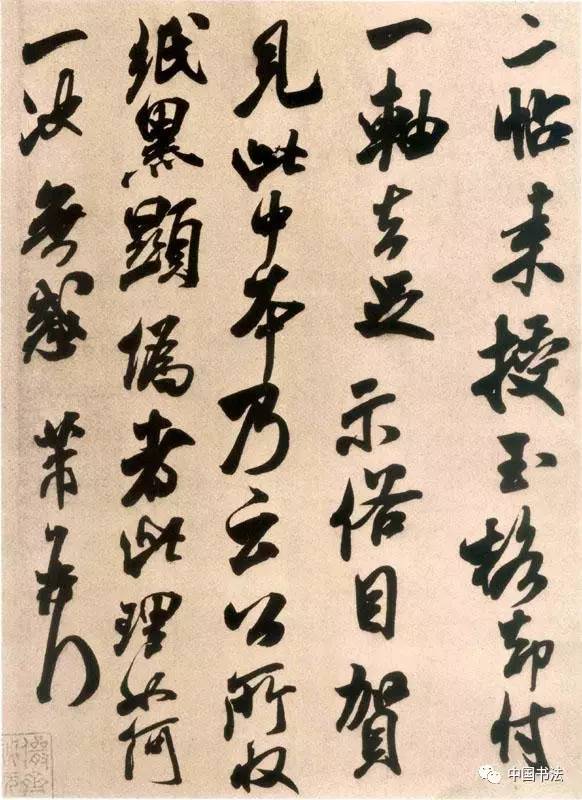 二帖来授玉格却付
一軸去足示俗目賀
見此中本乃云公所收
紙黑顯偽者此理如何
一決無惑 芾
中国书法